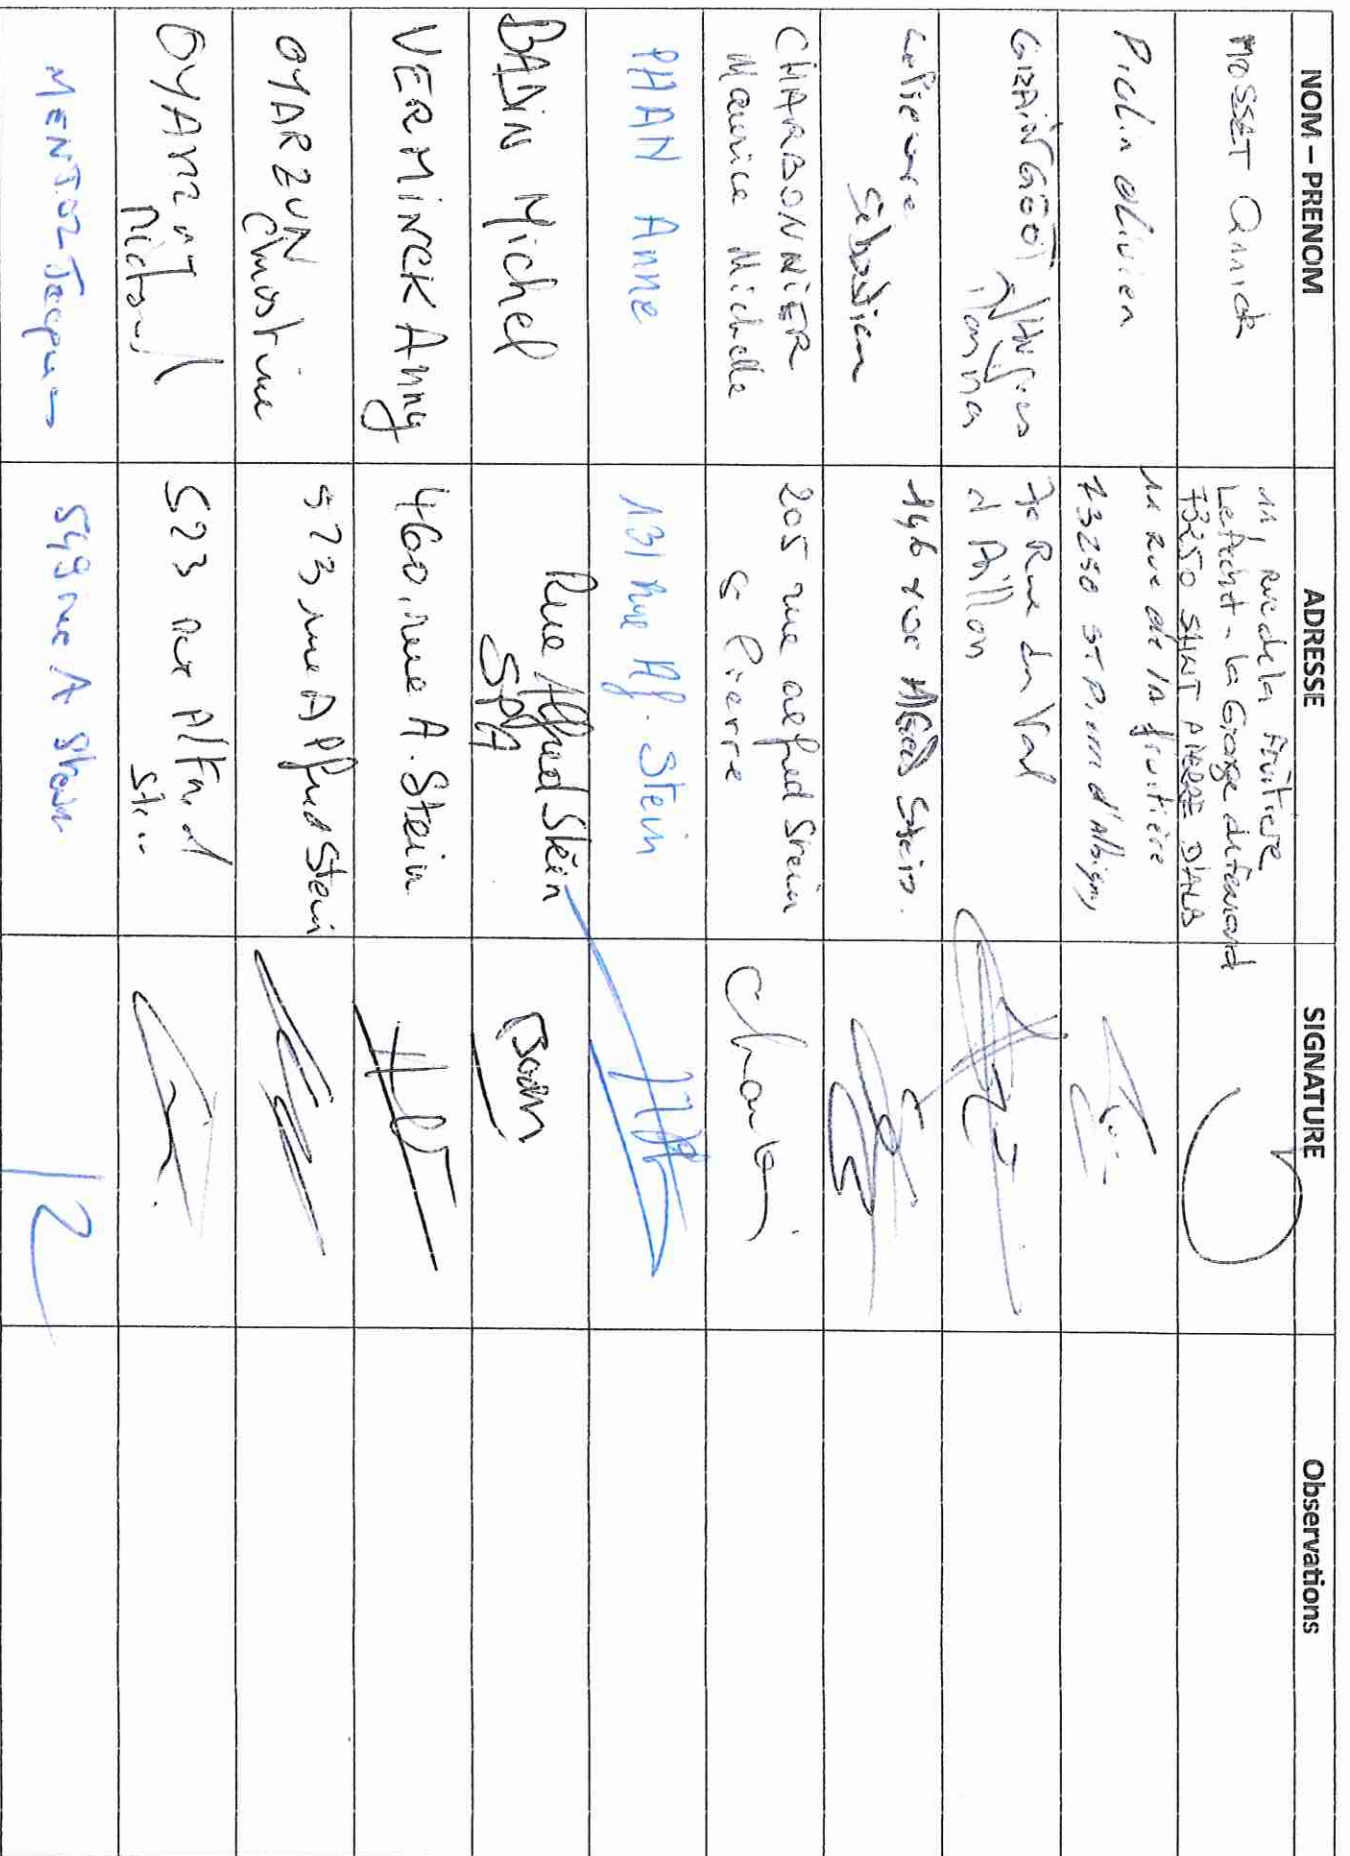 NOM – PRENOM
ADRESSE
SIGNATURE
Observations
MOSSET Annick
11, rue de la Fruitière
Le Fachet - la Gorge du Ternand
73250 SAINT PIERRE D'ALB
olivien
11 Rue de la fruitière
73250 ST Pierre d'Albigny
70 Rue du Val
d Aillon
Sébastien
146 rue Stein.
CHARBONNIER
Maurice Michelle
205 rue alfred Stein
St Pierre
PHAN Anne
131 Rue Alf. Stein
BADIN Michel
Rue Alfred Stein
SPA
Badin
VERMINCK Anny
460, rue A. Stein
OYARZUN
Christine
523 rue Alfred Stein
523 rue Alfred
MENJOZ Jacques
549 rue A Stein